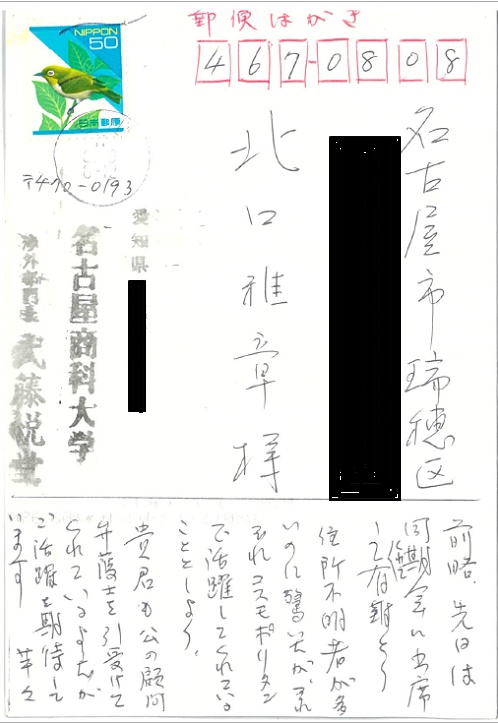 郵便はがき
467-0808
NIPPON
50
日本郵便
名古屋市瑞穂区
北口雅章様
〒470-0193
愛知県
名古屋商科大学
渉外部門長 武藤悦堂
前略、先日は
同期会に出席
して有難とう
住所不明者が多
いのに驚いたが、それ
ぞれコスモポリタン
で活躍してくれている
こととしよう。
貴君も公の顧問
弁護士を引受けて
くれているようだが
ご活躍を期待して
います 草々